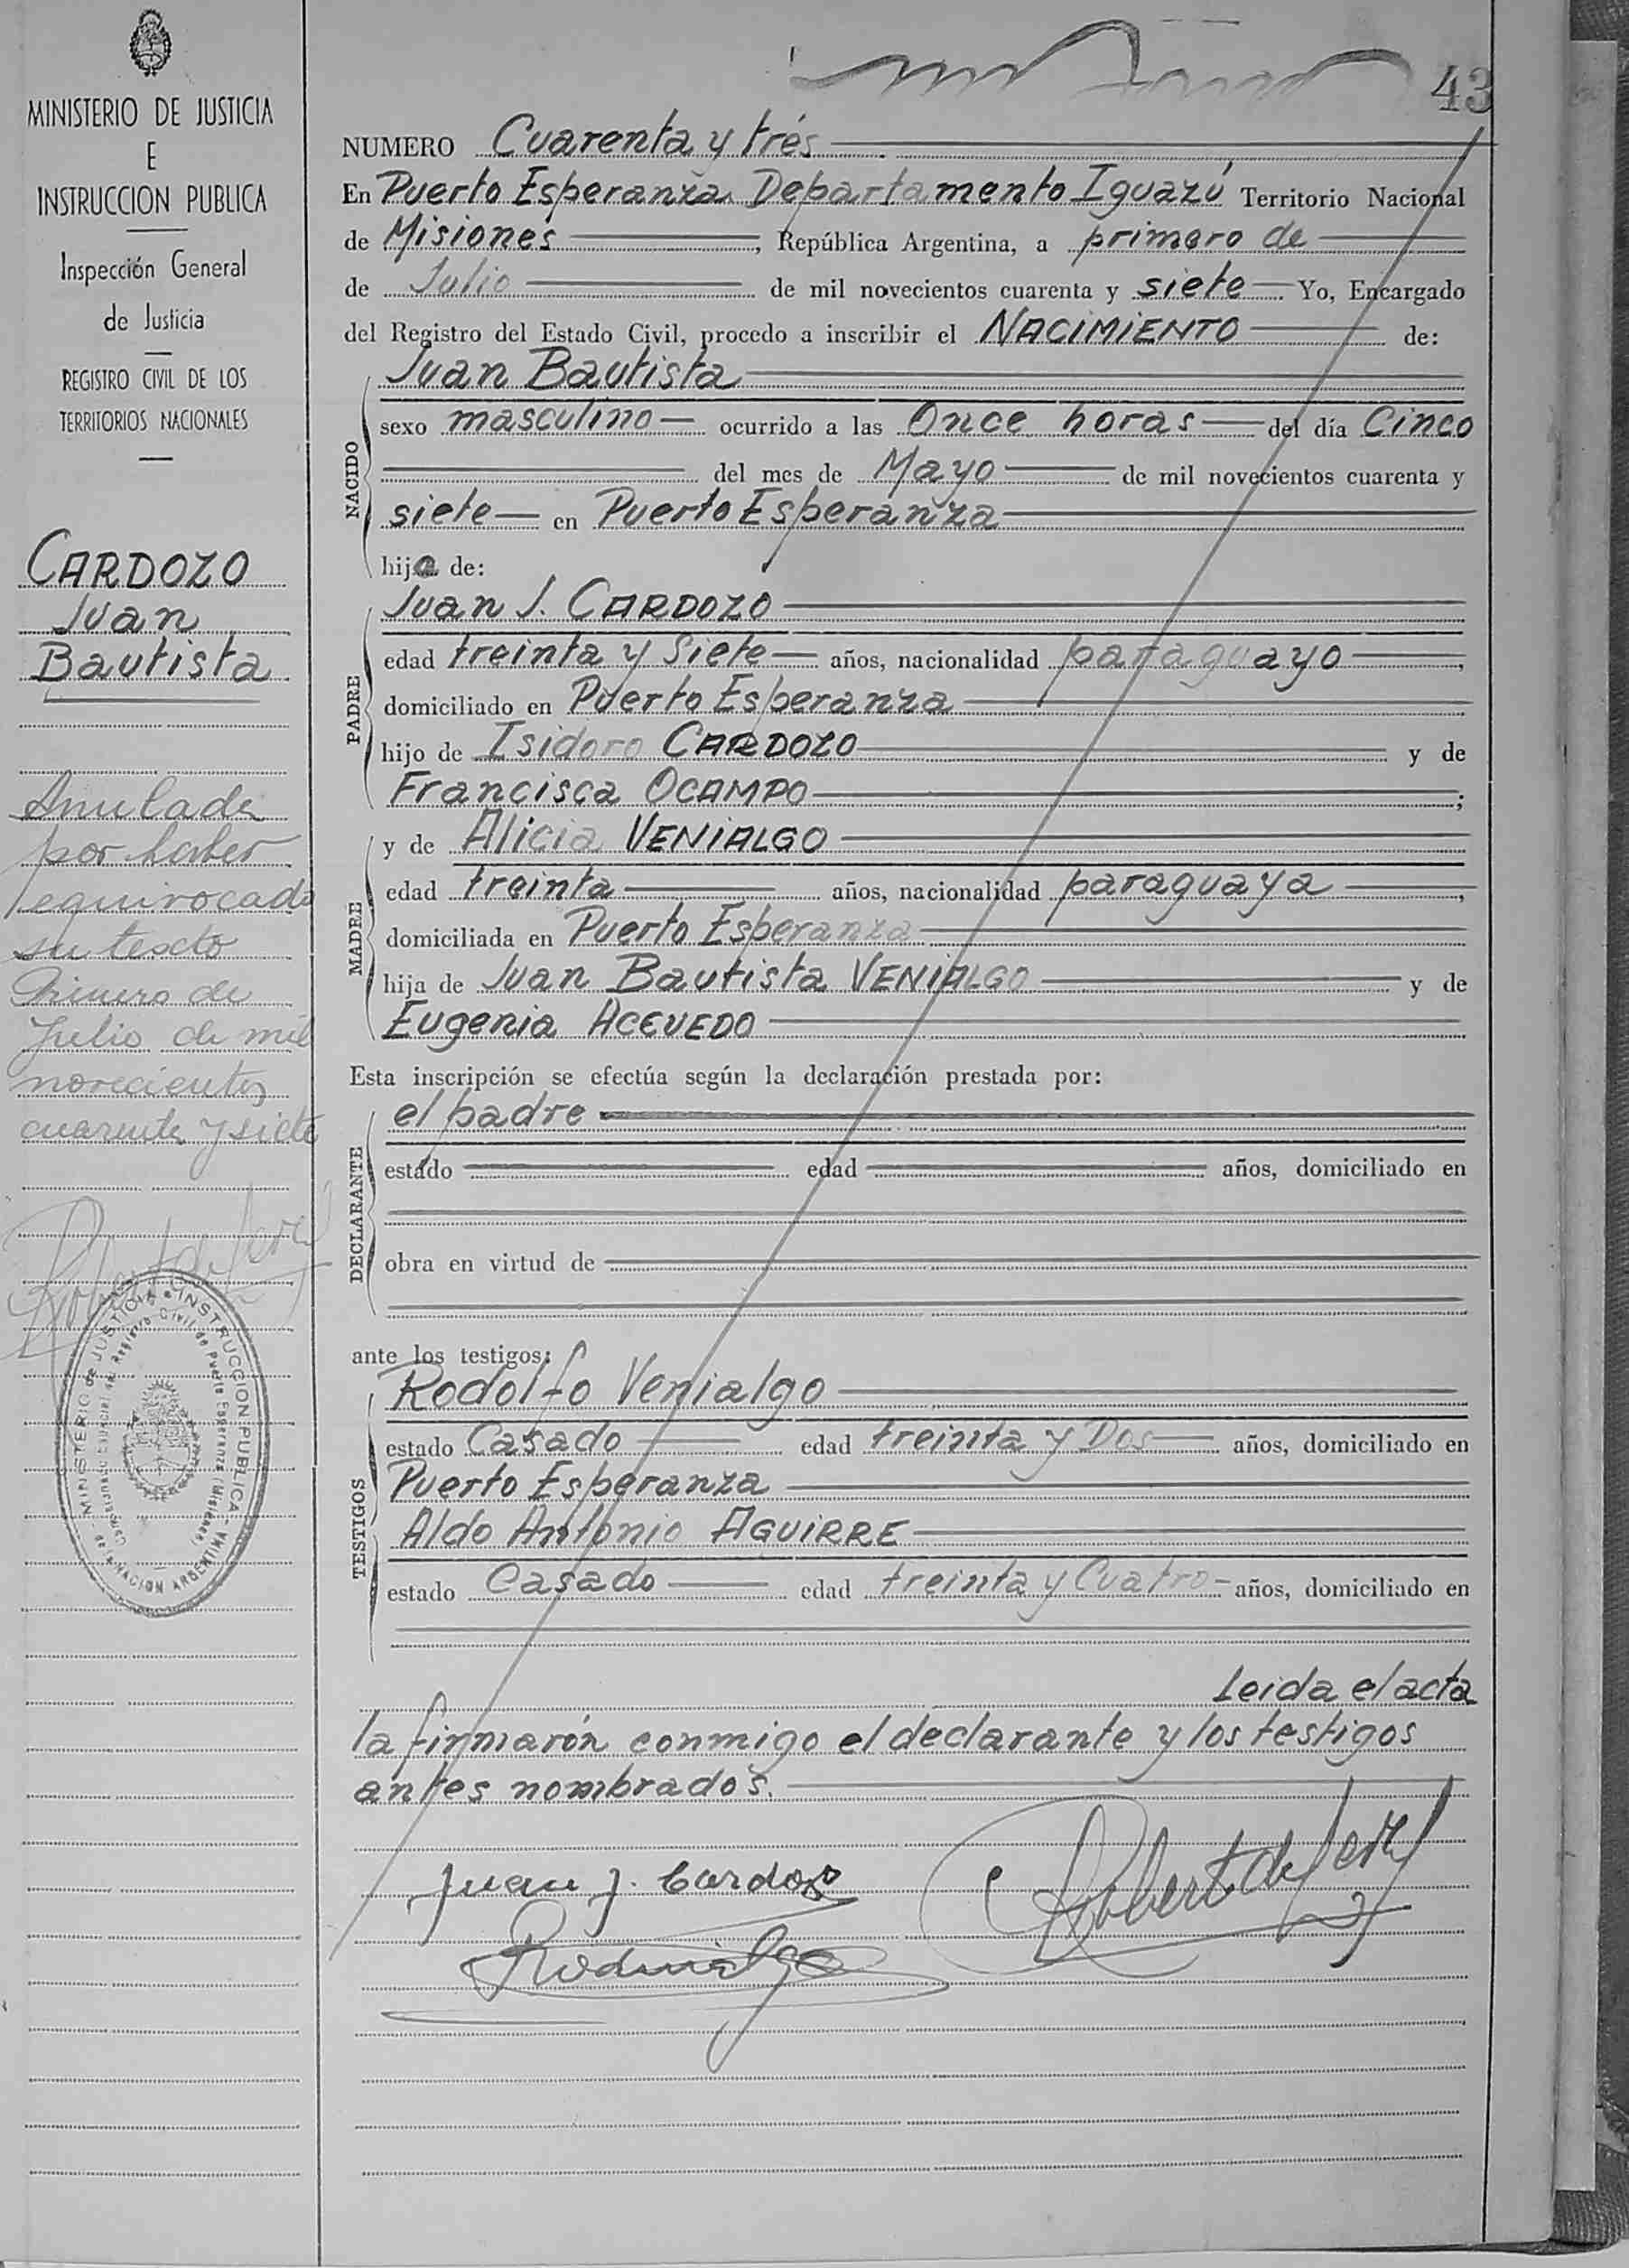 43
MINISTERIO DE JUSTICIA
E
INSTRUCCION PUBLICA
Inspección General
de Justicia
REGISTRO CIVIL DE LOS
TERRITORIOS NACIONALES
CARDOZO
Juan
Bautista
Anulada
por haber
equivocado
su texto
Primero de
Julio de mil
novecientos
cuarenta y siete
MINISTERIO de JUSTICIA e INSTRUCCION PUBLICA
NACION ARGENTINA
Registro Civil de Puerto Esperanza (Misiones)
NUMERO Cuarenta y trés
En Puerto Esperanza Departamento Iguazú Territorio Nacional
de Misiones, República Argentina, a primero de
de Julio de mil novecientos cuarenta y siete Yo, Encargado
del Registro del Estado Civil, procedo a inscribir el NACIMIENTO de:
NACIDO
Juan Bautista
sexo masculino ocurrido a las Once horas del día Cinco
del mes de Mayo de mil novecientos cuarenta y
siete en Puerto Esperanza
hijo de:
PADRE
Juan J. CARDOZO
edad treinta y Siete años, nacionalidad paraguayo,
domiciliado en Puerto Esperanza
hijo de Isidoro CARDOZO y de
Francisca OCAMPO;
MADRE
y de Alicia VENIALGO
edad treinta años, nacionalidad paraguaya,
domiciliada en Puerto Esperanza
hija de Juan Bautista VENIALGO y de
Eugenia ACEVEDO
Esta inscripción se efectúa según la declaración prestada por:
DECLARANTE
el padre
estado edad años, domiciliado en
obra en virtud de
ante los testigos:
TESTIGOS
Rodolfo Venialgo
estado Casado edad treinta y Dos años, domiciliado en
Puerto Esperanza
Aldo Antonio AGUIRRE
estado Casado edad treinta y Cuatro años, domiciliado en
Leida el acta
la firmarón conmigo el declarante y los testigos
antes nombrados.
Juan J. Cardozo